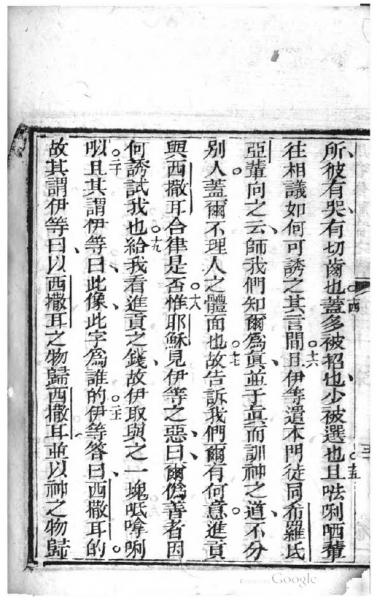 所彼有哭有切齒也蓋多被招也少被選也且𠵽唎哂輩
往相議如何可誘之其言間且伊等遣本門徒同希羅氏
亞輩向之云師我們知爾爲眞並于眞而訓神之道不分
別人蓋爾不理人之體面也故告訴我們爾有何意進貢
與西撒耳合律是否惟耶穌見伊等之惡曰爾僞善者因
何誘試我也給我看進貢之錢故伊取與之一塊呧嗱唎
㕥且其謂伊等曰此像此字爲誰的伊等答曰西撒耳的
故其謂伊等曰以西撒耳之物歸西撒耳並以神之物歸
十四
十五
十六
十七
十八
十九
二十
二十一
三
Google